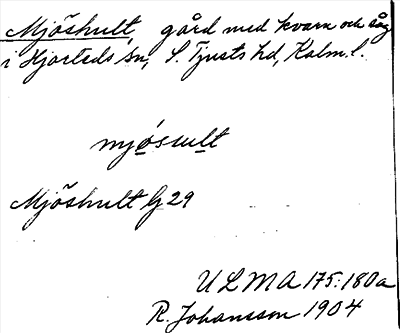 Mjöshult, gård med kvarn och såg
i Hjorteds sn, S. Tjusts hd, Kalm. l.
mjösult
Mjöshult G 29
ULMA 175:180a
R. Johansson 1904